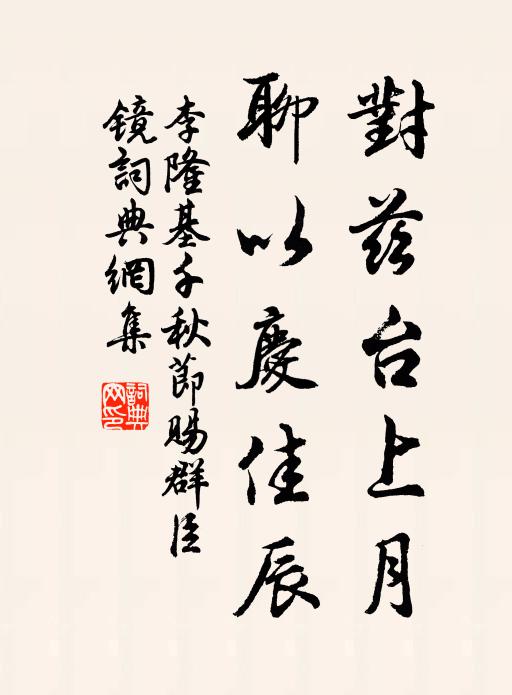 對茲台上月
聊以慶佳辰
李隆基千秋節賜群臣
鏡詞典網集
詞典
网印